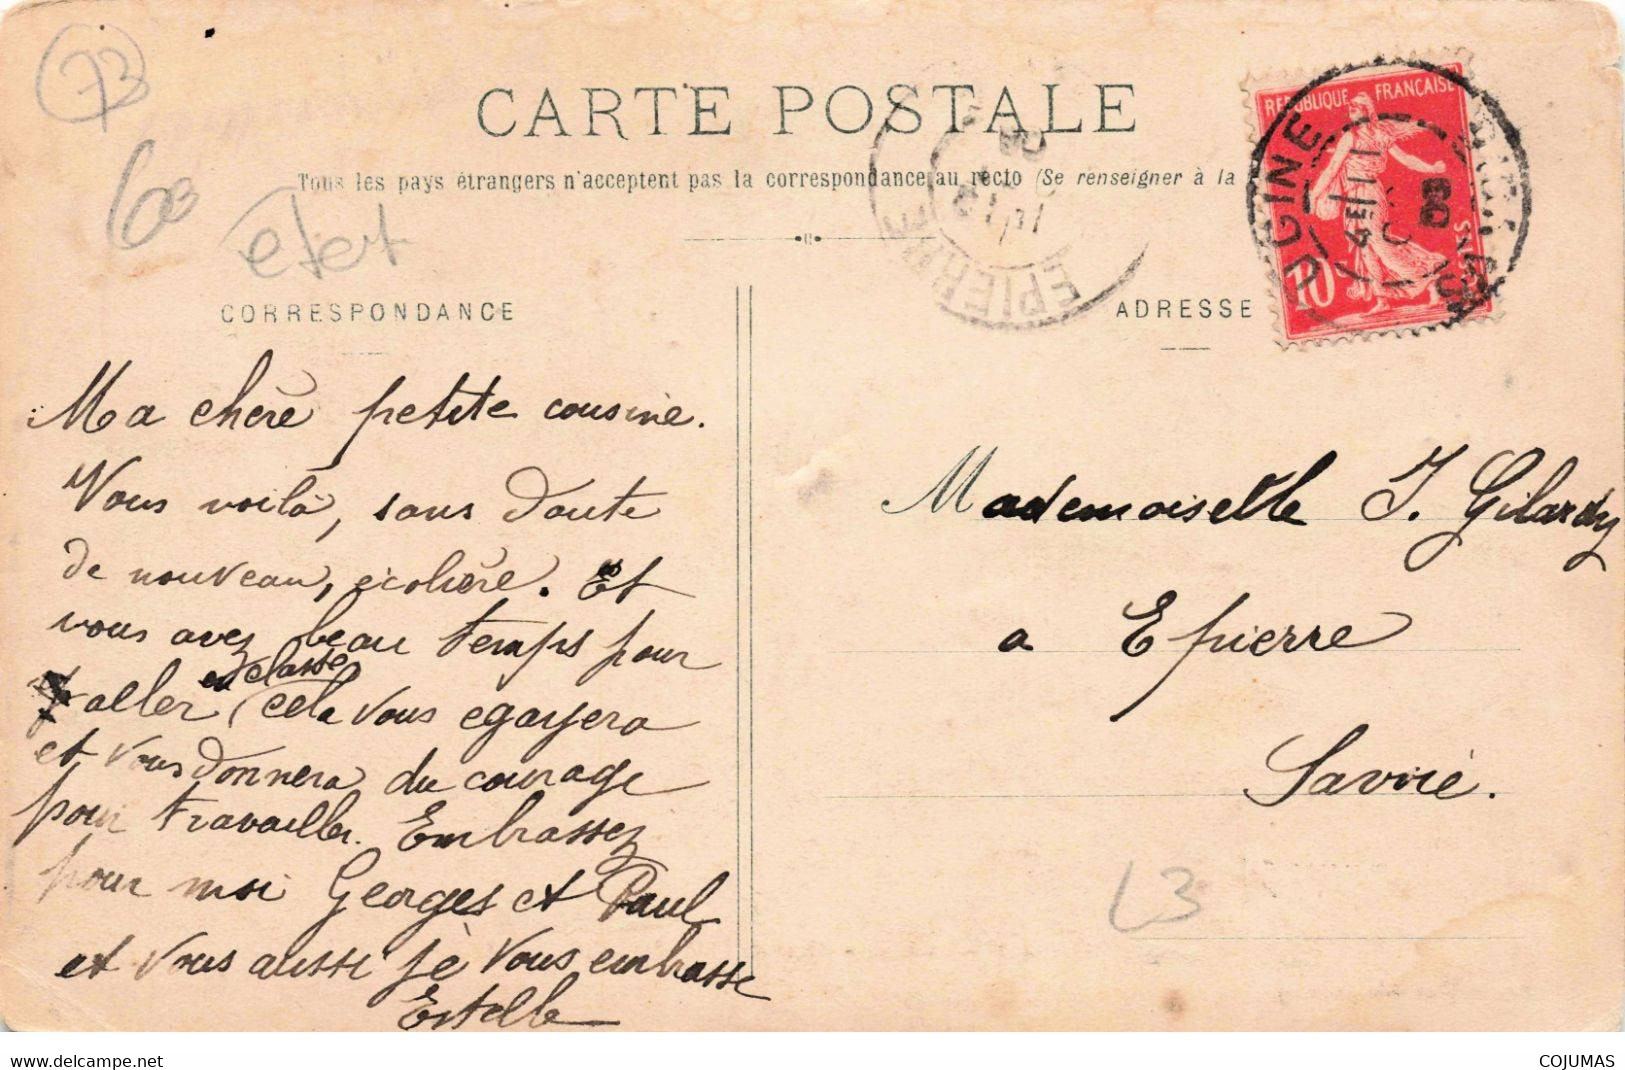 73
CARTE POSTALE
Tous les pays étrangers n'acceptent pas la correspondance au recto (Se renseigner à la
RÉPUBLIQUE FRANÇAISE
10
UGINE
08
EPIERRE
CORRESPONDANCE
ADRESSE
Ma chère petite cousine.
Vous voilà, sans doute
de nouveau, écolière. Et
vous avez beau temps pour
en classe
aller cela vous egayera
et vous donnera du courage
pour travailler. Embrassez
pour moi Georges et Paul
et vous aussi je vous embrasse
Estelle
Mademoiselle J. Gilardy
a Epierre
Savoie.
L3
www.delcampe.net
COJUMAS